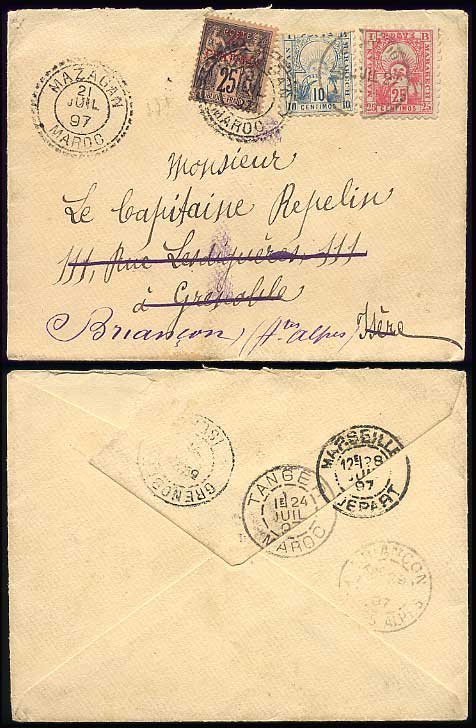 MAZAGAN
21
JUIL
97
MAROC
25
MAROC
10
10 CENTIMOS 10
25
CENTIMOS
Monsieur
Le Capitaine Repelin
111, Rue Lesdiguières 111
à Grenoble
Briançon (Htes alpes) Isère
GRENOBLE
ISÈRE
TANGER
1E 24
JUIL
MAROC
MARSEILLE
12E 28
97
DEPART
BRIANÇON
97
ALPES